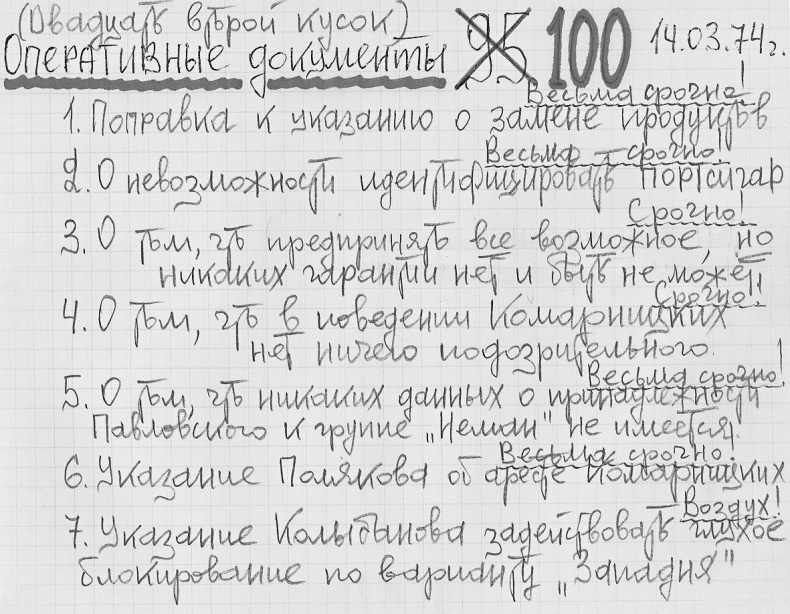 (Двадцать второй кусок)
Оперативные документы 95 100 14.03.74г.
Весьма срочно!
1. Поправка к указанию о замене продуктов
Весьма срочно!
2. О невозможности идентифицировать портсигар
Срочно!
3. О том, что предпринять все возможное, но
никаких гарантий нет и быть не может!
Срочно!
4. О том, что в поведении Комарницких
нет ничего подозрительного.
Весьма срочно!
5. О том, что никаких данных о принадлежности
Павловского к группе „Неман" не имеется.
Весьма срочно!
6. Указание Полякова об аресте Комарницких
Воздух!
7. Указание Колыбанова задействовать глухое
блокирование по варианту „Западня"